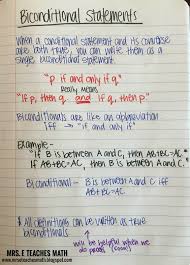 Biconditional Statements
When a conditional statement and its converse
are both true, you can write them as a
single biconditional statement.
"p if and only if q"
Really Means
"If p, then q and if q, then p"
Biconditionals are like an abbreviation
Iff → "if and only if"
Example -
"If B is between A and C, then AB+BC=AC."
"If AB+BC=AC, then B is between A and C."
Biconditional - B is between A and C iff
AB+BC=AC
All definitions can be written as true
biconditionals
will be helpful when we
do proofs (soon)
MRS. E TEACHES MATH